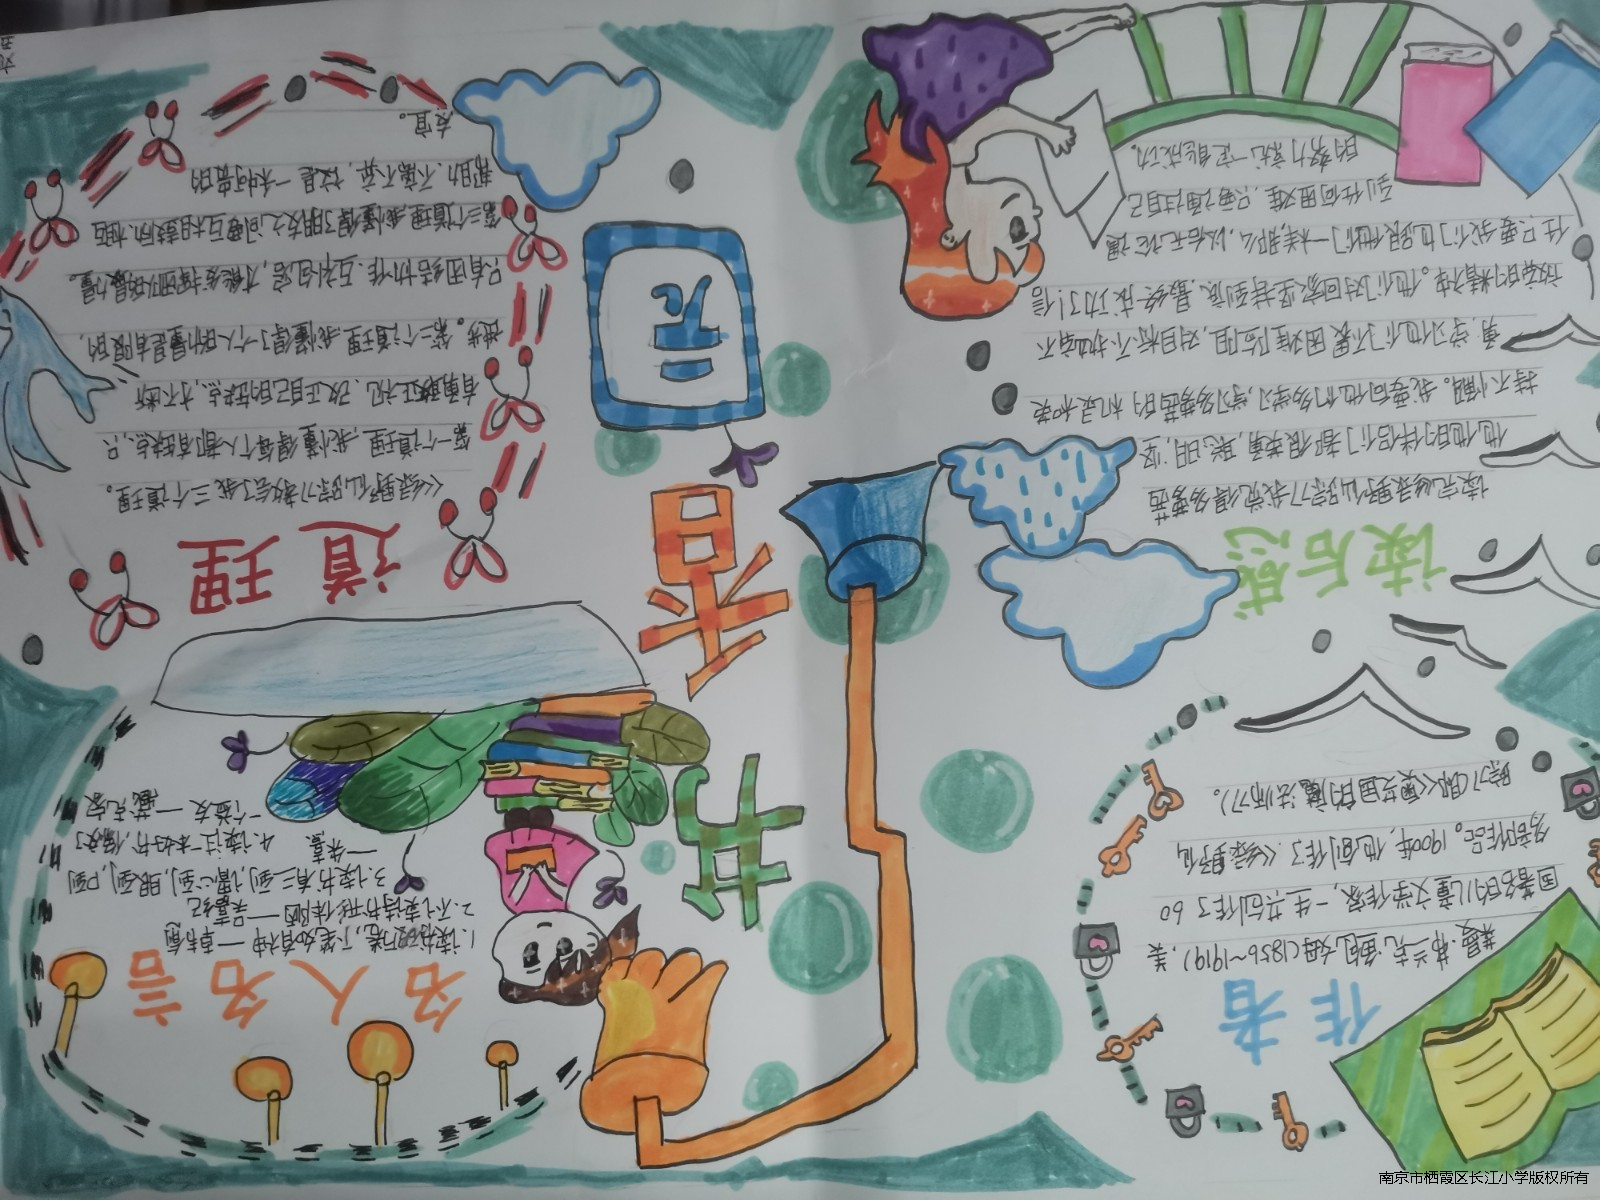 书香园
作者
莱曼·弗兰克·鲍姆(1856~1919),美
国著名的儿童文学作家,一生共创作了60
多部作品。1900年,他创作了《绿野仙
踪》(即《奥芝国的魔法师》)。
读后感
读完《绿野仙踪》我觉得多萝西
他他的伴侣们都很勇,聪明,坚
持不懈。我要向他们多学习,学习多萝茜的机灵和英
勇,学习他们不畏困难险阻,对目标不抛弃不
放弃的精神。他们对回家坚持到底,最终成功了!信
任只要我们也跟他们一样,那么,以后无论遇
到任何困难,只要通过自己
的努力就一定能成功。
名人名言
1.读书破万卷,下笔如有神——韩愈
2.不读诗书形体陋——吴嘉纪
3.读书有三到,谓心到,眼到,口到
——朱熹 4.读过一本好书,像交了
一个益友——臧克家
道理
《绿野仙踪》教会了我三个道理。
第一个道理,我懂得每个人都有缺点,只
有勇敢正视、改正自己的缺点,才不断
进步。第二个道理,我懂得了个人的力量是有限的,
只有团结协作、互补包容,才能发挥团队的最大力量。
第三个道理,我懂得了朋友之间要互相鼓励、相互
帮助、不离不弃,这是一种可贵的
友宜。
南京市栖霞区长江小学版权所有